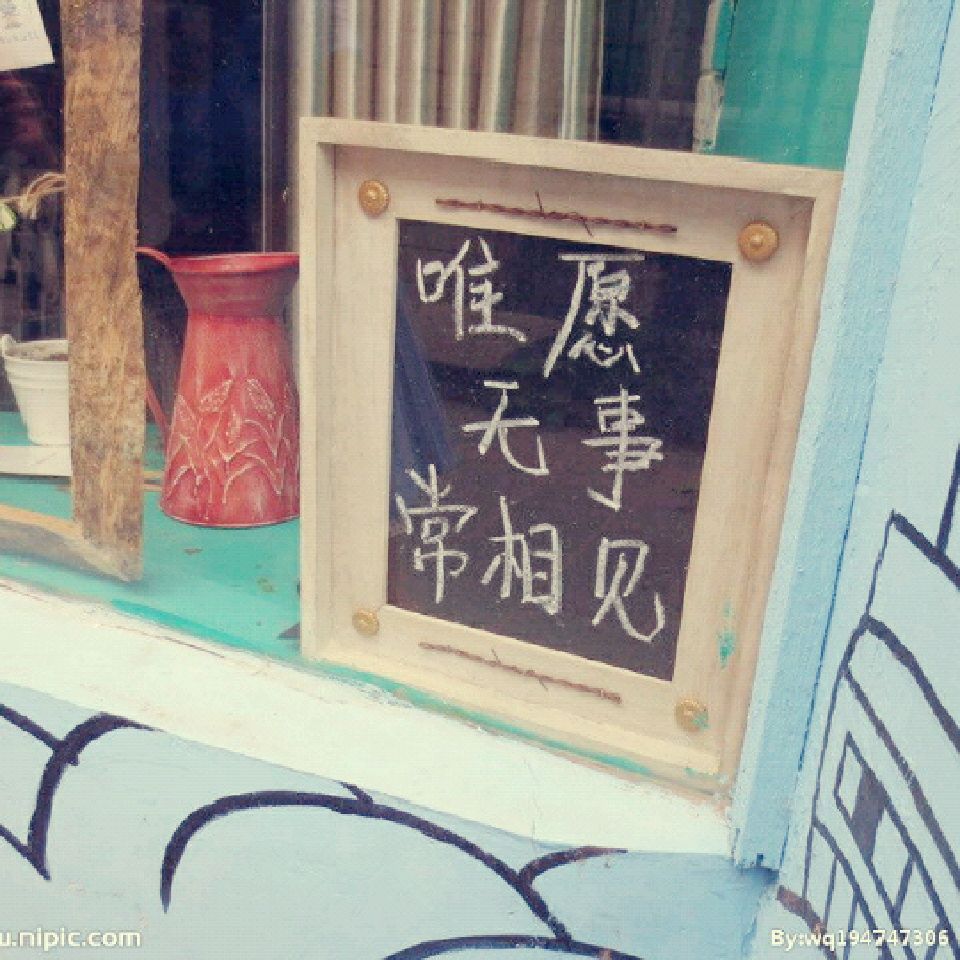 唯愿
无事
常相见
u.nipic.com
By:wq194747306